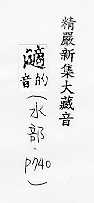 精嚴新集大藏音
滴音的(水部.
P740)